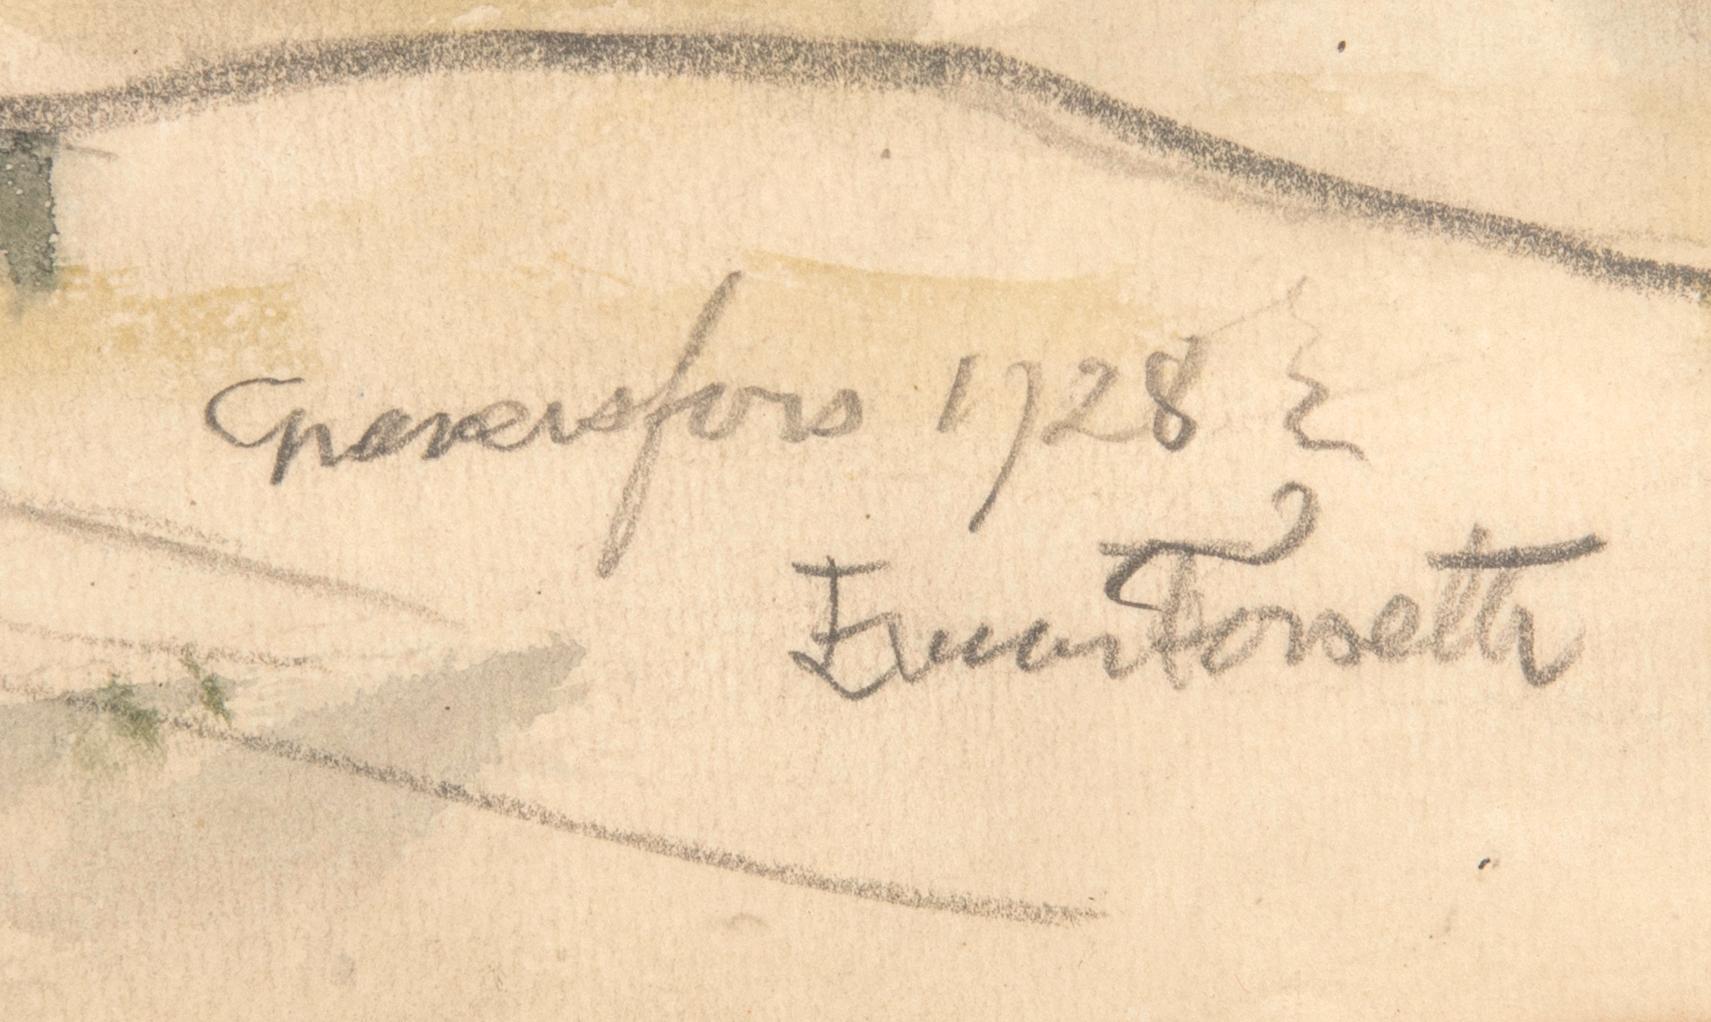 Graversfors 1928
Einar Forseth